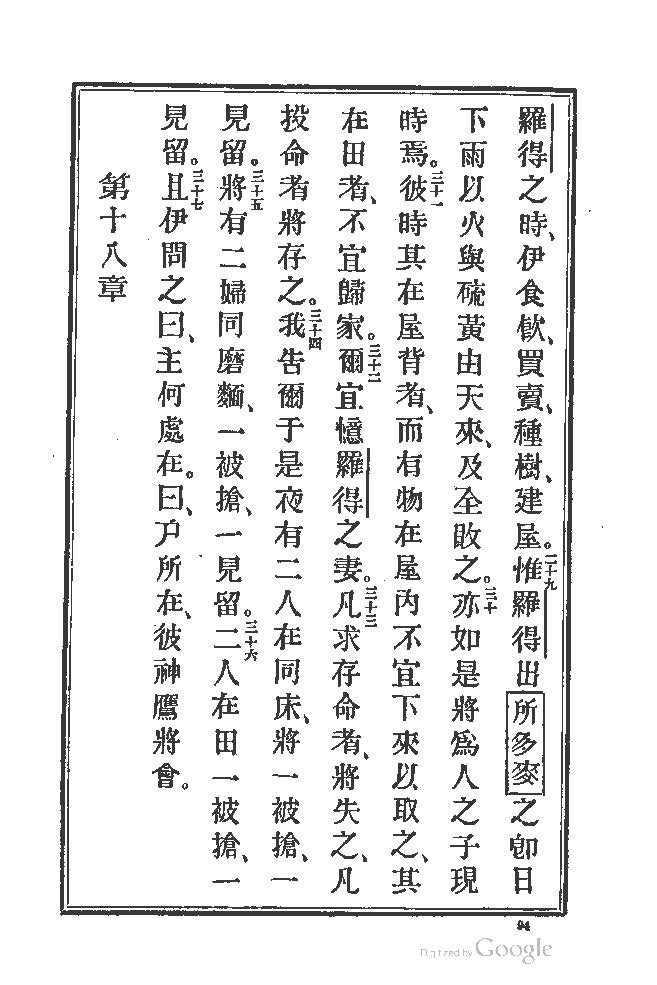 羅得之時、伊食飲、買賣、種樹、建屋。二十九惟羅得出所多麥之卽日
下雨以火與硫黃由天來、及全敗之。三十亦如是將爲人之子現
時焉。三十一彼時其在屋背者、而有物在屋內不宜下來以取之、其
在田者、不宜歸家。三十二爾宜憶羅得之妻。三十三凡求存命者、將失之、凡
投命者將存之。三十四我告爾于是夜有二人在同床、將一被搶、一
見留。三十五將有二婦同磨麵、一被搶、一見留。三十六二人在田一被搶、一
見留。三十七且伊問之曰、主何處在。曰、尸所在、彼神鷹將會。
第十八章
94
Digitized by Google